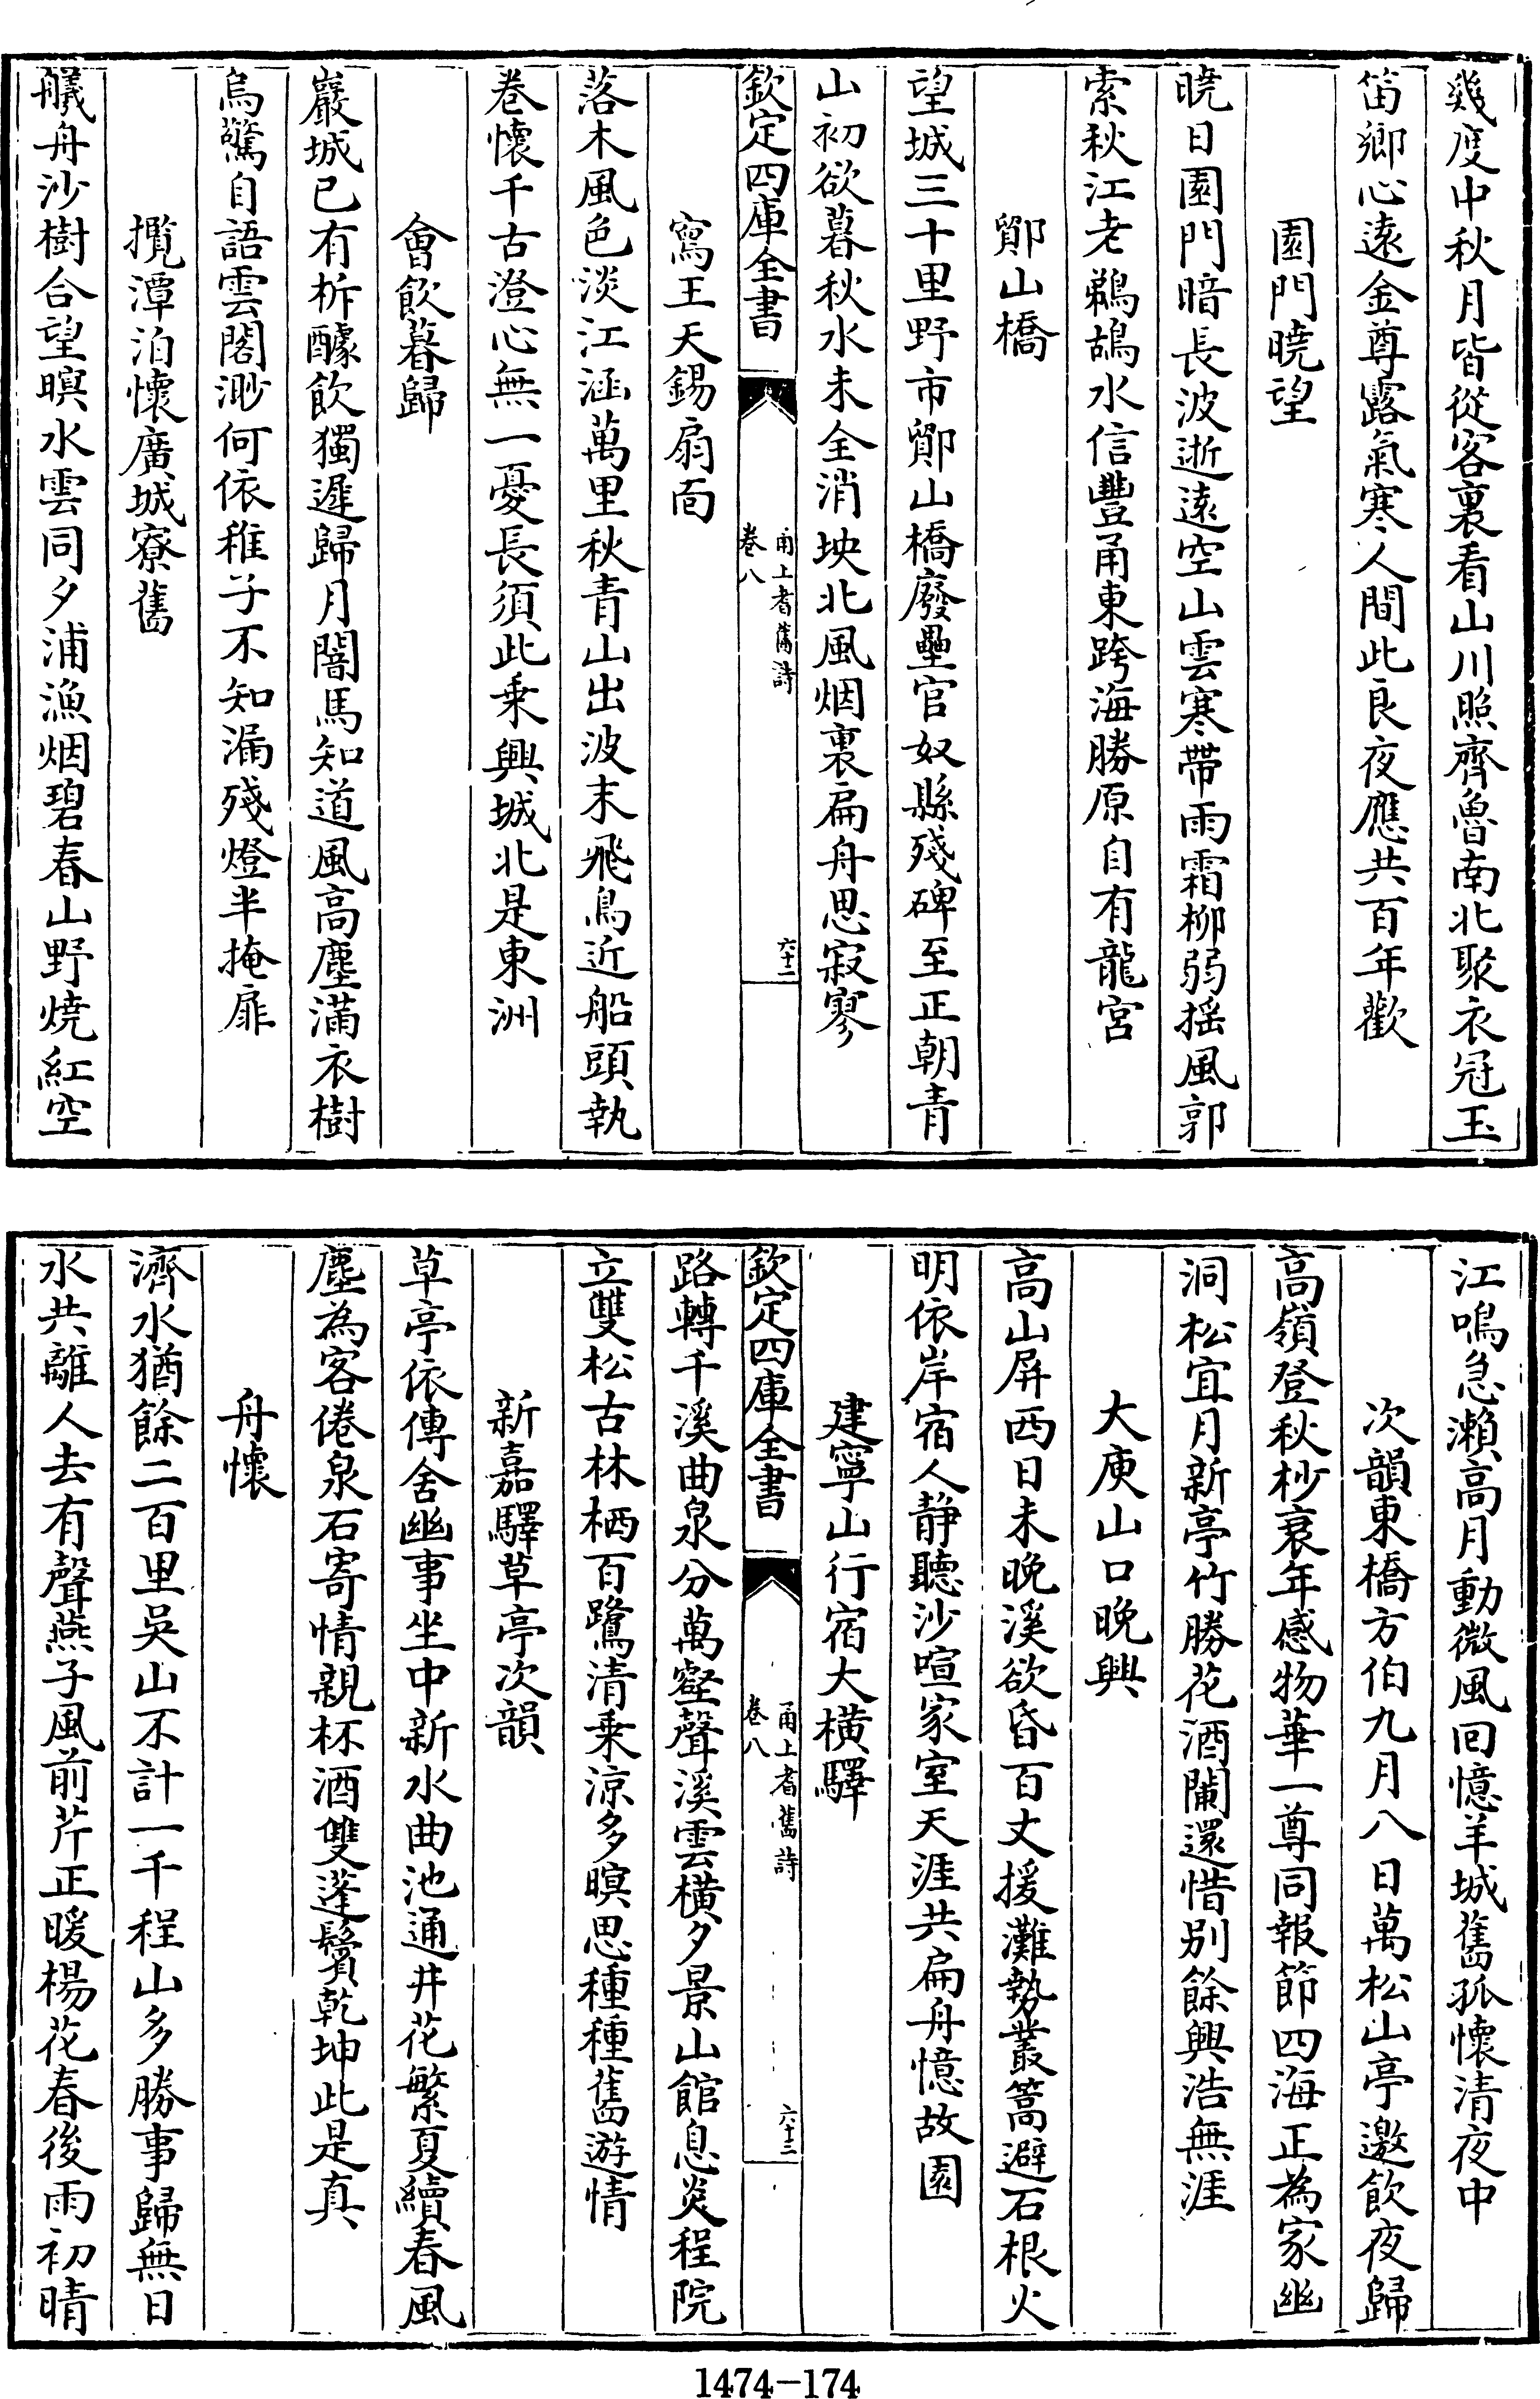 幾度中秋月皆從客裏看山川照齊魯南北聚衣冠玉
笛鄉心遠金尊露氣寒人間此良夜應共百年歡
園門曉望
曉日園門暗長波逝遠空山雲寒帶雨霜柳弱摇風郭
索秋江老鵜鴣水信豐甬東跨海勝原自有龍宮
鄮山橋
望城三十里野市鄮山橋廢壘官奴縣殘碑至正朝青
山初欲暮秋水未全消坱北風烟裏扁舟思寂寥
欽定四庫全書
甬上耆舊詩
卷八
六十二
寫王天錫扇面
落木風色淡江涵萬里秋青山出波末飛鳥近船頭執
卷懷千古澄心無一憂長須此乘興城北是東洲
會飲暮歸
巖城已有柝醵飲獨遲歸月闇馬知道風高塵滿衣樹
烏驚自語雲閣渺何依稚子不知漏殘燈半掩扉
攬潭泊懷廣城寮舊
艤舟沙樹合望暝水雲同夕浦漁烟碧春山野燒紅空
江鳴急瀨高月動微風回憶羊城舊孤懷清夜中
次韻東橋方伯九月八日萬松山亭邀飲夜歸
高嶺登秋杪衰年感物華一尊同報節四海正為家幽
洞松宜月新亭竹勝花酒闌還惜别餘興浩無涯
大庾山口晚興
高山屏西日未晚溪欲昏百丈援灘勢叢篙避石根火
明依岸宿人静聽沙喧家室天涯共扁舟憶故園
建寧山行宿大橫驛
欽定四庫全書
甬上耆舊詩
卷八
六十三
路轉千溪曲泉分萬壑聲溪雲橫夕景山館息炎程院
立雙松古林栖百鷺清乘凉多暝思種種舊遊情
新嘉驛草亭次韻
草亭依傳舍幽事坐中新水曲池通井花繁夏續春風
塵為客倦泉石寄情親杯酒雙蓬鬢乾坤此是真
舟懷
濟水猶餘二百里吳山不計一千程山多勝事歸無日
水共離人去有聲燕子風前芹正暖楊花春後雨初晴
1474-174